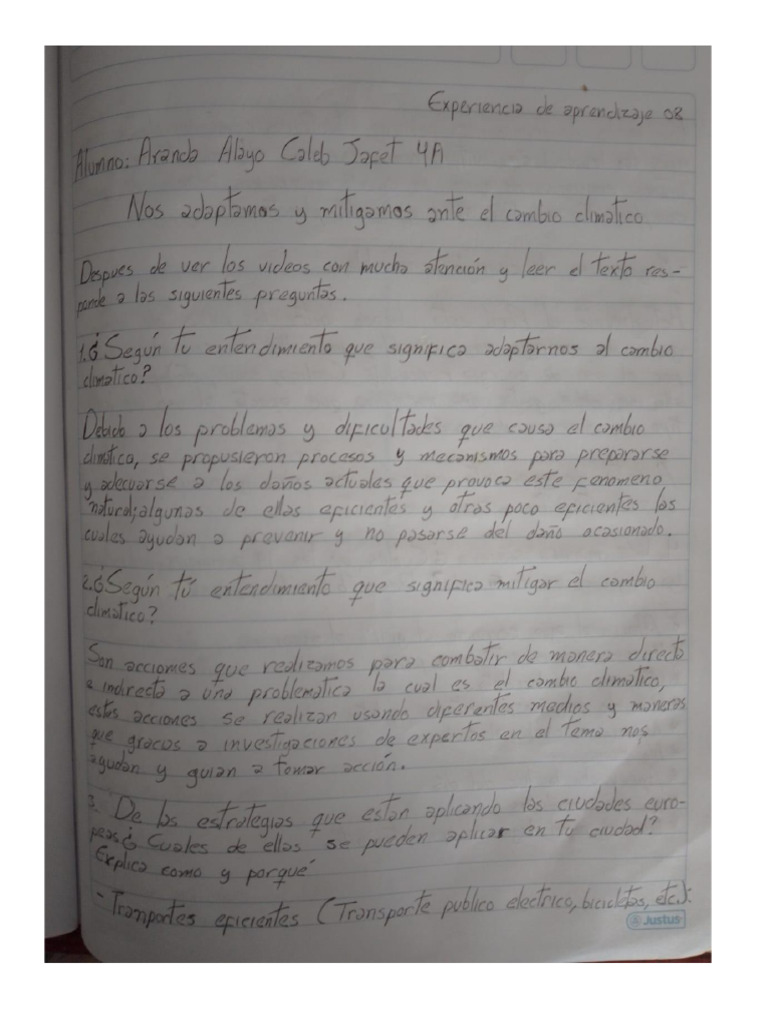 Experiencia de aprendizaje 08
Alumno: Aranda Alayo Caleb Jafet 4A
Nos adaptamos y mitigamos ante el cambio climatico
Despues de ver los videos con mucha atención y leer el texto res-
ponde a las siguientes preguntas.
1.¿Según tu entendimiento que significa adaptarnos al cambio
climatico?
Debido a los problemas y dificultades que causa el cambio
climatico, se propusieron procesos y mecanismos para prepararse
y adecuarse a los daños actuales que provoca este fenomeno
natural; algunas de ellas eficientes y otras poco eficientes las
cuales ayudan a prevenir y no pasarse del daño ocasionado.
2.¿Según tú entendimiento que significa mitigar el cambio
climatico?
Son acciones que realizamos para combatir de manera directa
e indirecta a una problematica la cual es el cambio climatico,
estas acciones se realizan usando diferentes medios y maneras
que gracias a investigaciones de expertos en el tema nos
ayudan y guian a tomar acción.
3. De las estrategias que estan aplicando las ciudades euro-
peas ¿Cuales de ellas se pueden aplicar en tu ciudad?
Explica como y porqué
- Tranportes eficientes (Transporte publico electrico, bicicletas, etc.):
Justus